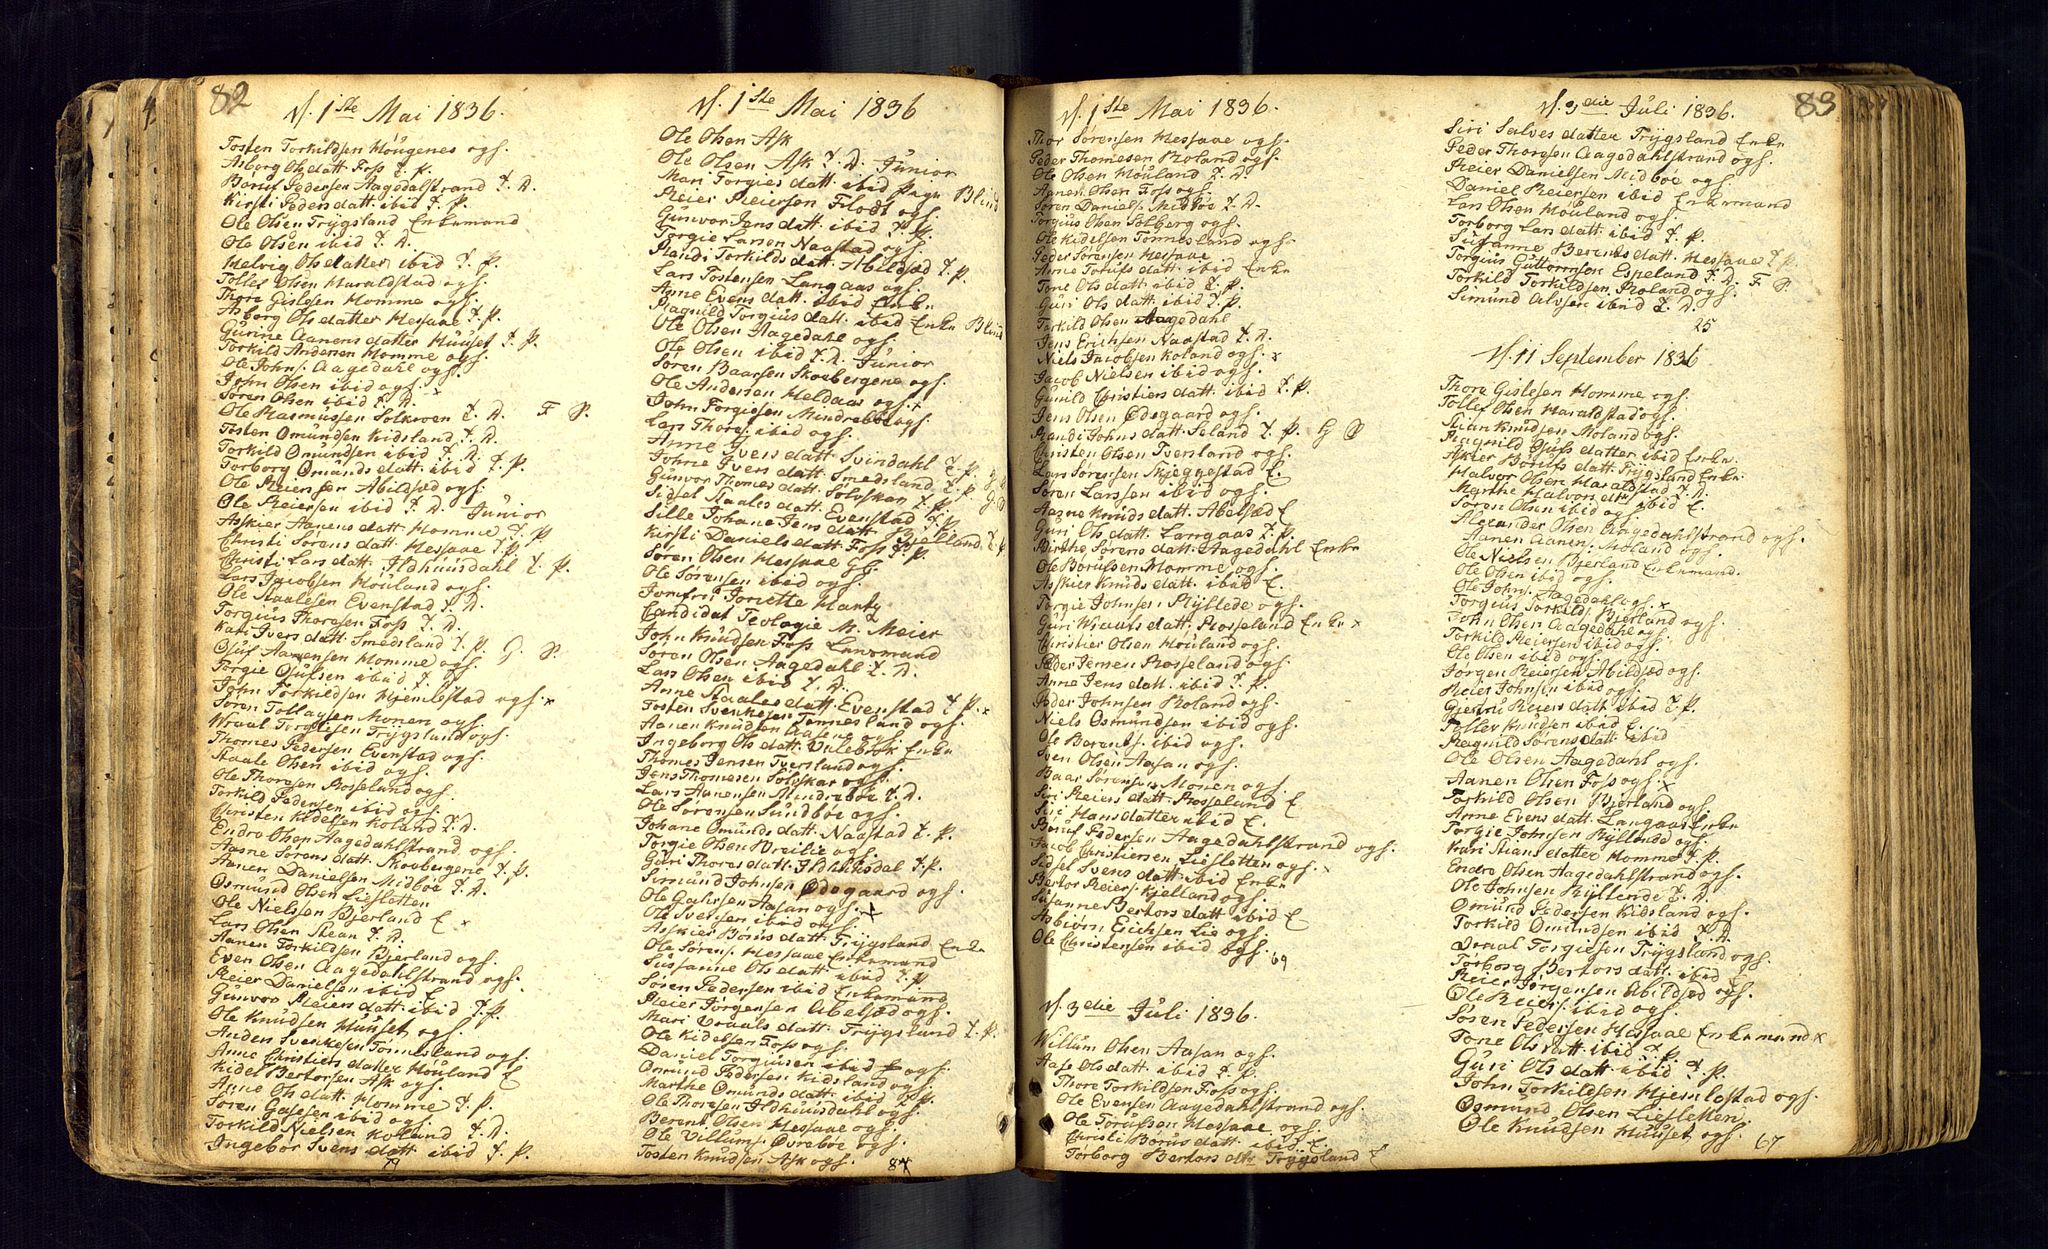 82
d. 1ste Mai 1836.
Tosten Torkildsen Hougenes ogh.
Asborg Olsdatt Foss T. P.
Boruf Pedersen Aagedalstrand T. D.
Kirsti Peders datt ibid T. P.
Ole Olsen Trygsland Enkemand
Ole Olsen ibid T. D.
Helvig Olsdatter ibid T. P.
Tollef Olsen Haraldstad ogh.
Thore Gislesen Homme ogh.
Asborg Olsdatter Messaae T. P.
Gurine Aanensdatter Huuset T. P.
Torkild Andersen Homme ogh.
Ole Johns. Aagedahl ogh.
John Olsen ibid ogh.
Søren Olsen ibid T. D. x
Ole Rasmussen Solkroen T. D. F S.
Tosten Omundsen Kidsland T. D.
Torkild Omundsen ibid T. D.
Torborg Omunds datt. ibid T. P.
Ole Reiersen Abildsæd ogh.
Ole Reiersen ibid T. D. Junior
Askier Aanens datt Homme T. P
Christi Sørens datt. Messaae T. P.
Christi Lars datt. Ildhuusdahl T. P.
Lars Jacobsen Houland ogh.
Ole Staalesen Evenstad T. D.
Torgius Thoresen Foss T. D.
Kari Ivers datt. Smedsland T. P. G. S.
Osuf Aanensen Homme ogh.
Torgie Osufsen ibid T.
John Torkildsen Hjemlestad ogh. x
Søren Tollagsen Monen ogh.
Wraal Torgiesen Trygsland ogh.
Thomes Pedersen Evenstad ogh.
Staale Olsen ibid ogh.
Ole Thorsen Rosseland ogh.
Torkild Pedersen ibid ogh.
Christen Kidelsen Roland T. D.
Endre Olsen Aagedahlstrand ogh.
Aasne Sørens datt. Skoebergene T. P.
Aanen Danielsen Midbøe T. D.
Osmund Olsen Lieslotten
Ole Nielsen Bjerland E x
Lars Olsen Stean T. D.
Aanen Torkildsen Bjerland ogh.
Even Olsen Aagedahlstrand ogh.
Reier Danielsen ibid E
Gunvor Reiers datt. ibid T. P.
Ole Knudsen Huuset ogh.
Anders Svenkesen Tønnesland ogh.
Anne Christiers datter Houland E
Kidel Bertorsen Ask ogh.
Anne Ols datt. Homme T. P.
Søren Galesen ibid ogh.
Torkild Nielsen Koland T. D.
Ingebor Svens datt. ibid T. P.
79
d. 1ste Mai 1836
Ole Olsen Ask
Ole Olsen Ask T. D. Junior
Mari Torgies datt. ibid Pige Blind
Reier Reiersen Flodt ogh.
Gunvor Jens datt. ibid T. P.
Torgie Larsen Naastad ogh.
Randi Torkilds datt. Abildsæd T. P
Lars Tostensen Langaas ogh.
Anne Evens datt. ibid Enke.
Ragnild Torgius datt. ibid Enke Blind
Ole Olsen Aagedahl ogh.
Ole Olsen ibid T. D. Junior
Søren Baarsen Skoebergene ogh.
Ole Andersen Heldaas ogh. x
John Torgiesen Mindrebøe ogh.
Lars Thores. ibid ogh.
Anne Ivers datt. Svindahl T. P. G
Johne Ivers datt. Smedsland T. P. G S
Gunvor Thomes datt. Solvskar T. P.
Sidsel Staales datt. Evenstad T. P.
Sille Johane Jens datt. Bjelland T. P
Kirsti Daniels datt. Foss T. P.
Søren Olsen Messaae E
Ole Sørensen ibid ogh.
Jomfru Joriette Manty
Candidat Teologie M. Meier
John Knudsen Foss Lensmand
Søren Olsen Aagedahl T. D.
Lars Olsen ibid T. D.
Anne Staales datt. Evenstad T. P. x
Tosten Svenkesen Tønnesland ogh.
Aanen Knudsen Aasene ogh.
Ingeborg Ols datt. Ulebrok Enke
Thomes Jensen Tversland ogh.
Jens Thomesen Solvskar ogh.
Lars Aanensen Mindrebøe T. D.
Ole Sørensen Sundbøe ogh.
Johane Omunds datt. Naastad T. P.
Torgie Olsen Breilie ogh.
Guri Thores datt. Ildhuusdal T. P.
Simund Johnsen Ødegaard ogh.
Ole Galesen Aasan ogh. x
Ole Svensen ibid ogh.
Askier Børus datt. Trygsland Enke
Ole Sørens. Messaae Enkemand
Susanne Ols datt. ibid T. P
Søren Pedersen ibid Enkemand
Reier Jørgensen Abelsæd ogh.
Mari Vraals datt. Trygsland T. P.
Ole Kidelsen Foss ogh.
Daniel Torgiusen ibid ogh.
Omund Pedersen Kidsland ogh.
Marthe Omunds datt. ibid T. P.
Ole Thoresen Ildhuusdahl ogh.
Berent Olsen Messaae ogh.
Ole Villums. Øvrebøe ogh.
Tosten Knudsen Ask ogh. 84
d. 1ste Mai 1836.
Thor Sørensen Messaae ogh.
Peder Thomesen Roland ogh.
Ole Olsen Houland T. D
Aanen Olsen Foss ogh.
Søren Daniels. Midbøe T. D.
Torgius Olsen Solberg ogh.
Ole Kidelsen Tønnesland ogh.
Peder Sørensen Messaae
Anne Torufs datt. ibid Enke
Tone Ols datt. ibid T. P.
Guri Ols datt. ibid T. P.
Torkild Olsen Aagedahl
Jens Erichsen Naastad T. D.
Niels Jacobsen Koland ogh. x
Jacob Nielsen ibid ogh.
Gunild Christiers datt. ibid T. P.
Jens Olsen Ødegaard ogh.
Randi Johns datt. Seland T. P. G S
Christen Olsen Tversland ogh.
Lars Sørensen Skjeggestad E.
Søren Larssen ibid ogh.
Aasne Knuds datt. Abelsæd E
Guri Ols datt. Langaas T. P.
Birthe Sørens datt. Aagedahl Enke
Ole Børussen Homme ogh.
Askier Knuds datt. ibid E
Torgie Johnsen Ryllede ogh.
Guri Wraals datt. Rosseland Enke x
Christier Olsen Houland ogh.
Peder Jensen Rosseland ogh.
Anne Jens datt. ibid T. P.
Peder Johnsen Roland ogh.
Niels Osmundsen ibid ogh.
Ole Berents. ibid ogh.
Sven Olsen Aasan ogh.
Baar Sørensen Monen ogh.
Siri Reiers datt. Rosseland E
Siri Hans datter ibid E.
Boruf Pedersen Aagedahlstrand ogh.
Jacob Christiersen Lieslotten ogh.
Sidsel Svens datt. ibid Enke x
Bertor Reiers. Kjelland ogh.
Susanne Bertors datt. ibid E
Asbiørn Erichsen Lie ogh.
Ole Christensen ibid ogh. 69
d. 3die Juli 1836.
Willum Olsen Aasan ogh.
Aase Ols datt. ibid T. P.
Thore Torkildsen Foss ogh.
Ole Evensen Aagedahlstrand ogh.
Ole Torufsen Messaae ogh.
Christi Børus datt. ibid E.
Torborg Bertors dtr Trygsland E
d. 3die Juli 1836. 83
Siri Salves datter Trygsland Enke
Peder Thorsen Aagedahlstrand ogh.
Reier Danielsen Midbøe ogh.
Daniel Reiersen ibid Enkemand
Lars Olsen Houland ogh.
Torborg Lars datt. ibid T. P.
Susanne Berents datt. Messaae T. P.
Torgius Guttormsen Espeland T. D. F S.
Torkild Torkildsen Roland ogh.
Simund Alvsen ibid T. D.
25
d. 11 September 1836
Thore Gislesen Homme ogh.
Tollef Olsen Haraldstad ogh.
Stian Knudsen Roland ogh.
Ragnild Osufs datter ibid Enke.
Askier Børufs datt. Trygsland Enke.
Halvor Olsen Haraldstad T. D.
Marthe Halvors dtr ibid E.
Søren Olsen ibid ogh.
Alexander Olsen Aagedahlstrand ogh.
Aanen Aanens. Roland ogh.
Ole Nielsen Bjerland Enkemand.
Ole Olsen ibid ogh.
Ole Johns. Aagedahl ogh. x
Torgius Torkilds. Bjerland ogh.
John Olsen Aagedahl ogh.
Torkild Reiersen ibid ogh.
Ole Olsen ibid ogh.
Jørgen Reiersen Abildsæd ogh.
Reier Johnsen ibid ogh.
Gjertru Reiers datt. ibid T. P.
Tollef Knudsen ibid E.
Ragnild Sørens datt. ibid
Ole Olsen Aagedahl ogh.
Aanen Olsen Foss ogh. x
Torkild Olsen Bjerland ogh.
Anne Evens datt. Langaas Enke
Torgie Johnsen Ryllende ogh.
Kari Stians datter Homme T. P.
Endre Olsen Aagedahlstrand ogh.
Ole Johnsen Ryllende T. D.
Omund Pedersen Kidsland ogh.
Torkild Omundsen ibid T. D.
Vraal Torgiesen Trygsland ogh.
Torborg Bertors datt. ibid E.
Reier Jørgensen Abildsæd ogh.
Ole Reiers. ibid ogh.
Søren Pedersen Messaae Enkemand x
Tone Ols datt. ibid T. P.
Guri Ols datt. ibid T. P.
John Torkildsen Hjemlestad ogh.
Osmund Olsen Liesletten.
Ole Knudsen Huuset ogh. 67